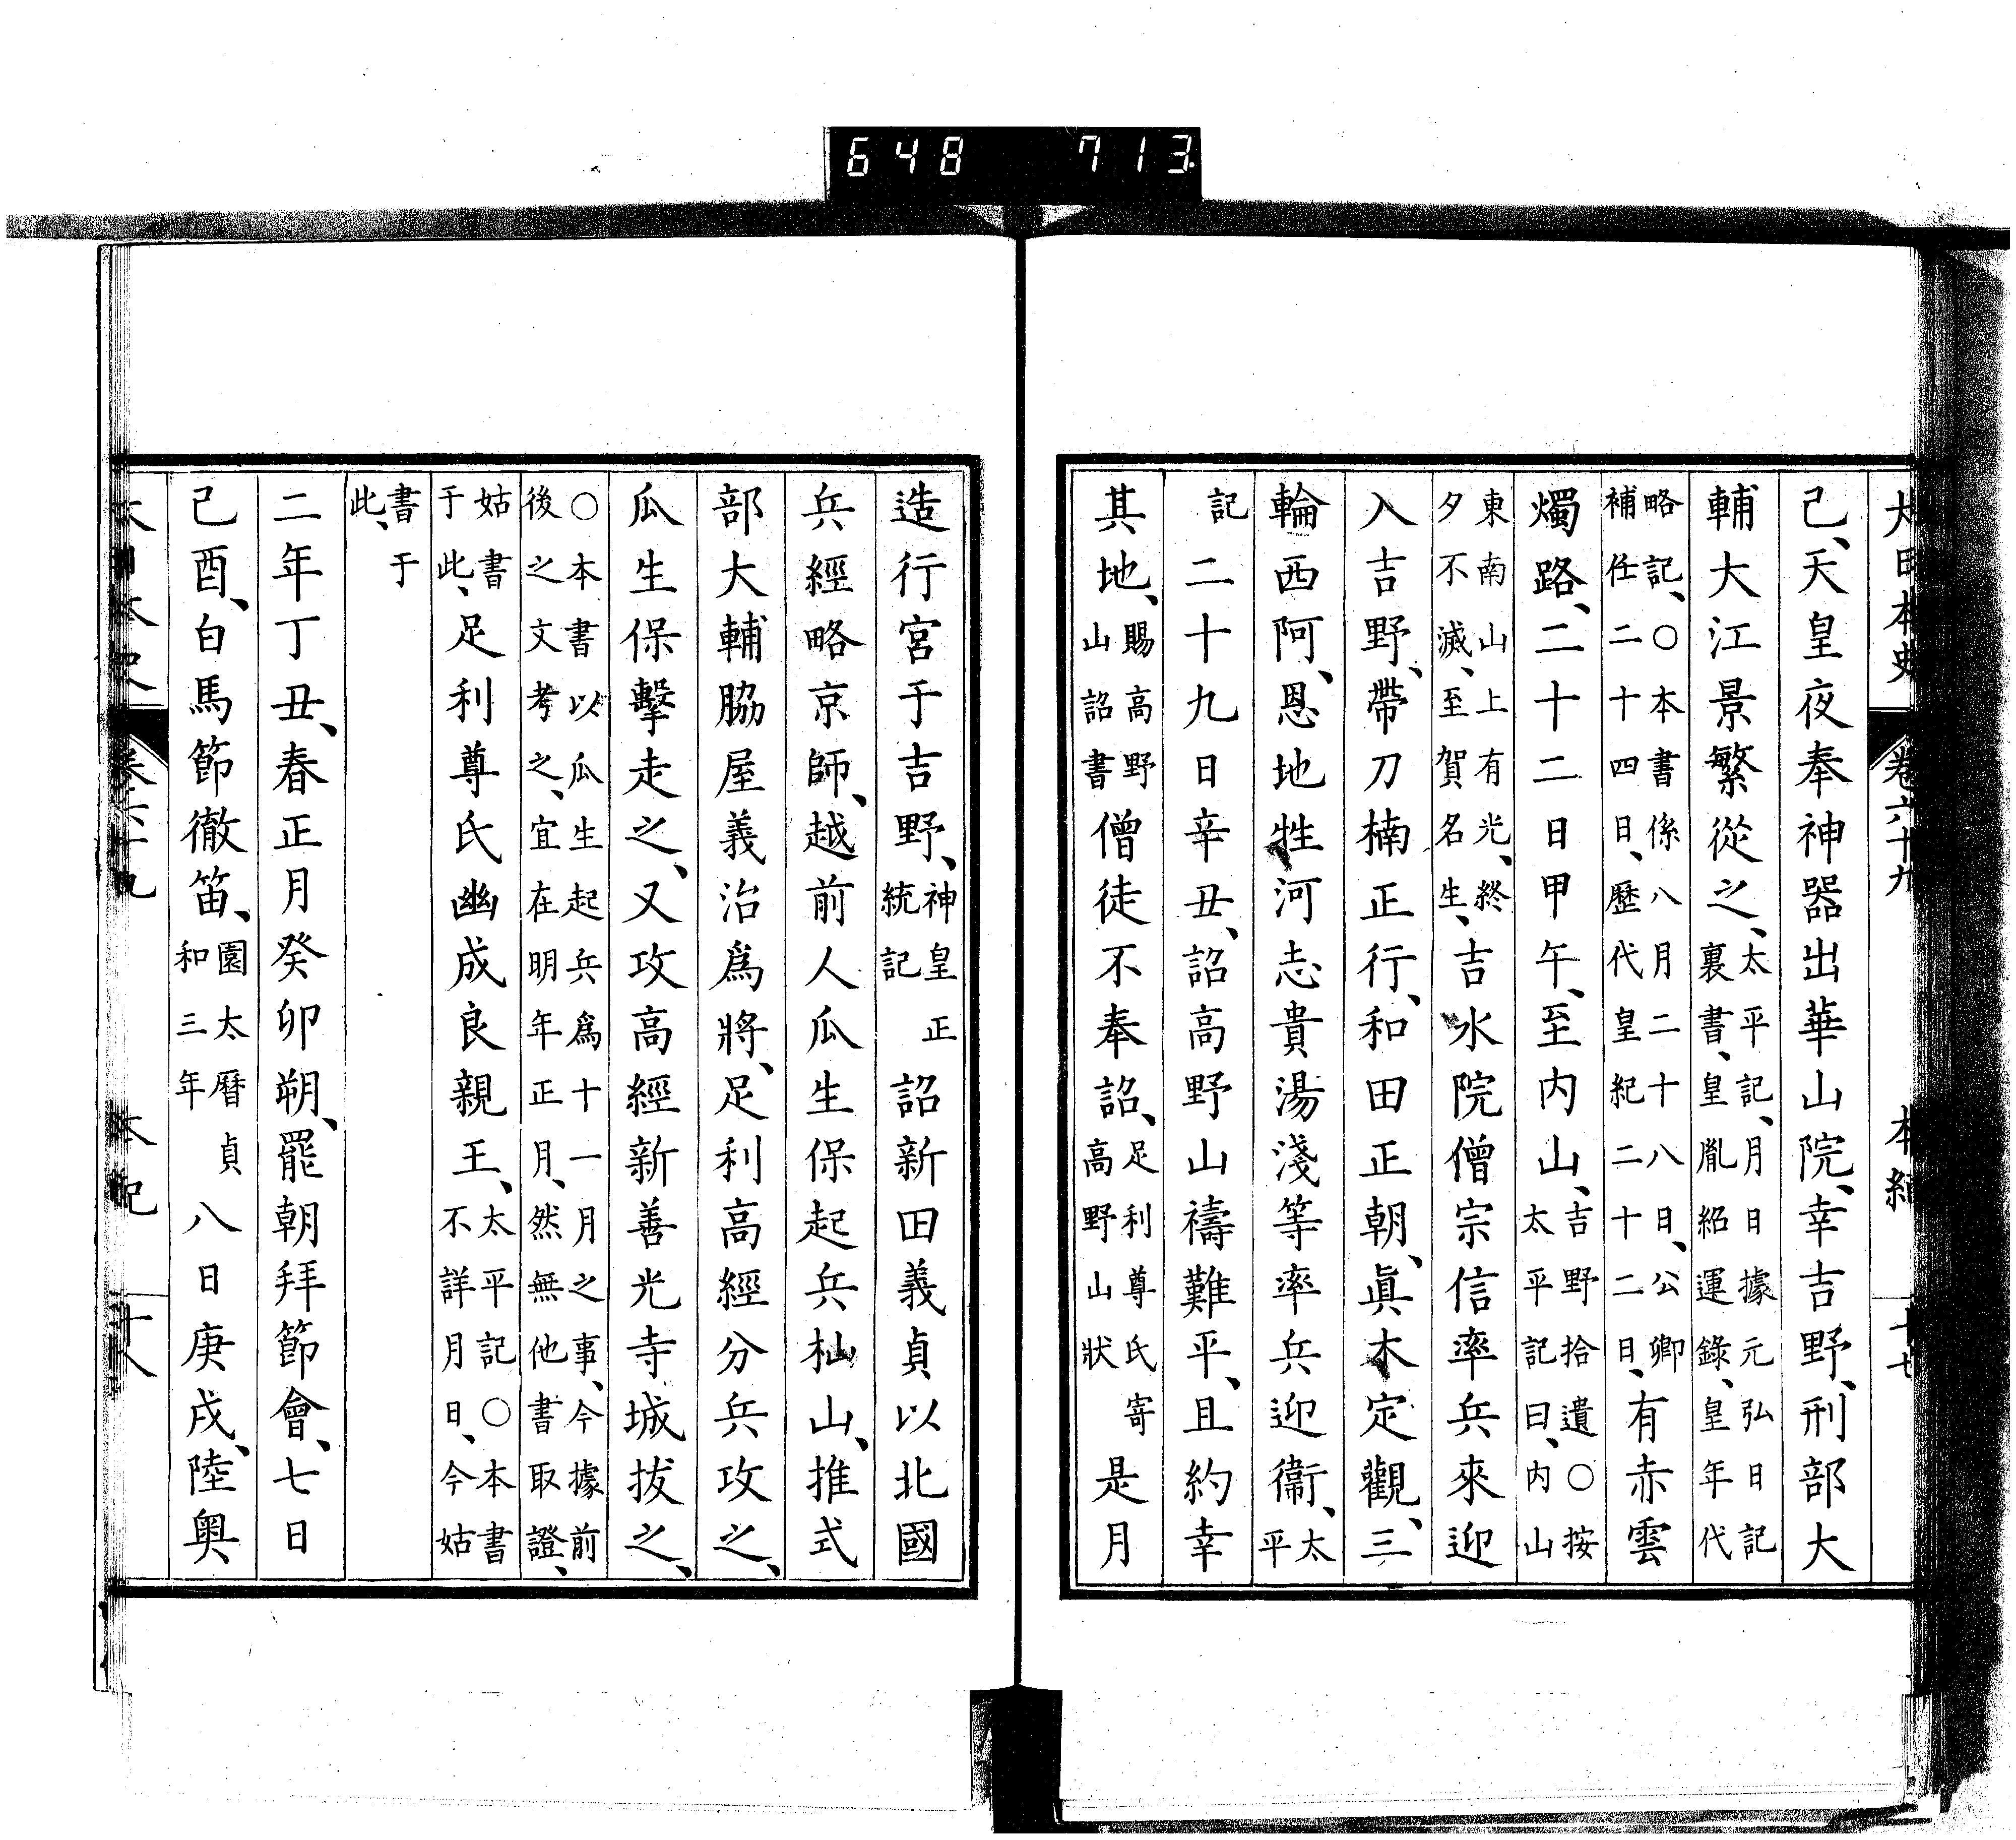 648 713
大日本史 卷六十九 本紀 十七
己、天皇夜奉神器出華山院、幸吉野、刑部大
輔大江景繁從之、太平記、月日據元弘日記裏書、皇胤紹運錄、皇年代
略記、○本書係八月二十八日、公卿補任二十四日、歷代皇紀二十二日、有赤雲
燭路、二十二日甲午、至内山、吉野拾遺○按太平記曰、内山
東南山上有光、終夕不滅、至賀名生、吉水院僧宗信率兵來迎
入吉野、帶刀楠正行、和田正朝、眞木定觀、三
輪西阿、恩地牲河志貴湯淺等率兵迎衞、太平
記二十九日辛丑、詔高野山禱難平、且約幸
其地、賜高野山詔書僧徒不奉詔、足利尊氏寄高野山狀是月
造行宮于吉野、神皇正統記詔新田義貞以北國
兵經略京師、越前人瓜生保起兵杣山、推式
部大輔脇屋義治爲將、足利高經分兵攻之、
瓜生保擊走之、又攻高經新善光寺城拔之、
○本書以瓜生起兵爲十一月之事、今據前後之文考之、宜在明年正月、然無他書取證、
姑書于此、足利尊氏幽成良親王、太平記○本書不詳月日、今姑
書于此、
二年丁丑、春正月癸卯朔、罷朝拜節會、七日
己酉、白馬節徹笛、園太曆貞和三年八日庚戌、陸奥
大日本史 卷六十九 本紀 十八